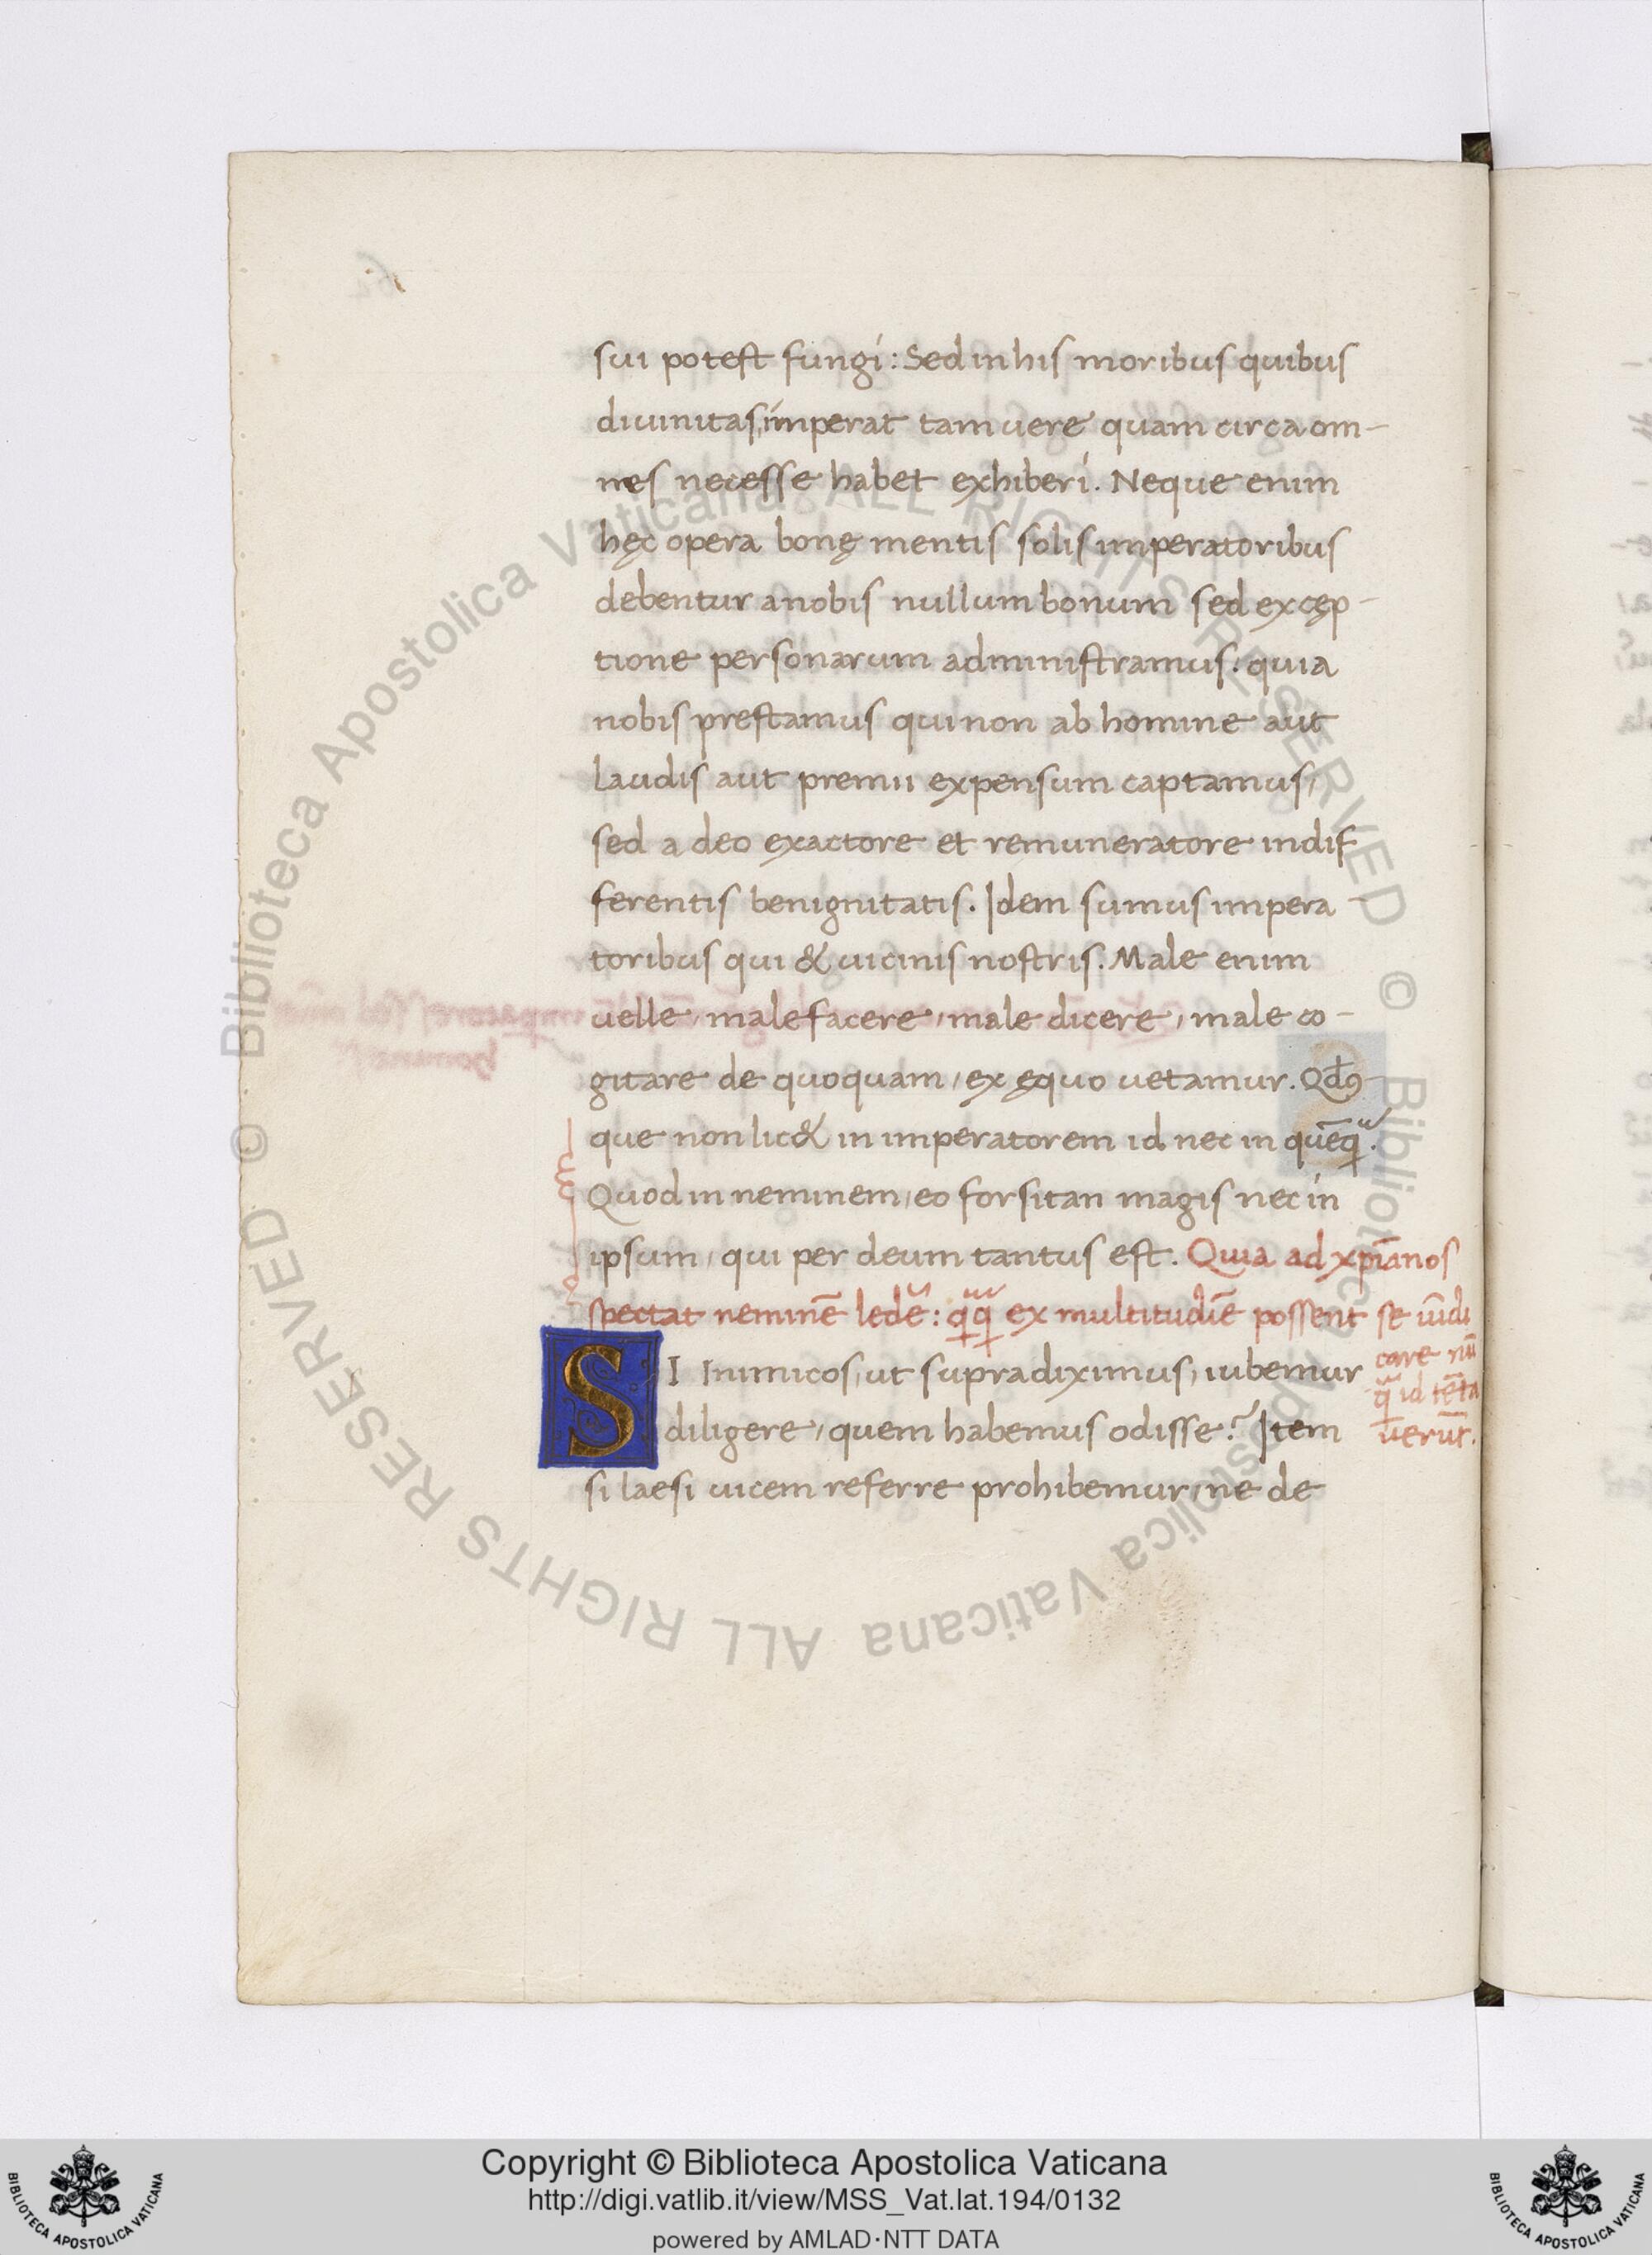 sui potest fungi: Sed in his moribus quibus
diuinitas, imperat tam uere quam circa om-
nes necesse habet exhiberi. Neque enim
hęc opera bonę mentis solis imperatoribus
debentur a nobis nullum bonum sed excęp-
tione personarum administramus: quia
nobis prestamus qui non ab homine aut
laudis aut premii expensum captamus,
sed a deo exactore et remuneratore indif
ferentis benignitatis. Idem sumus impera
toribus qui & uicinis nostris. Male enim
uelle, male facere, male dicere, male co-
gitare de quoquam, ex ęquo uetamur. Qdꝯ-
que non lic& in imperatorem id nec in quēqᷓ.
Quod in neminem, eo forsitan magis nec in
ipsum, qui per deum tantus est. Quia ad xp̄ianos
spectat neminē ledē: qᷓqᷓ ex multitudīe possent se uīdi
care nū
qᷓ id tēta
uerūt.
SI Inimicos, ut supra diximus, iubemur
diligere, quem habemus odisse? Item
si laesi uicem referre prohibemur, ne de
© Biblioteca Apostolica Vaticana ALL RIGHTS RESERVED © Biblioteca Apostolica Vaticana ALL RIGHTS RESERVED
Copyright © Biblioteca Apostolica Vaticana
http://digi.vatlib.it/view/MSS_Vat.lat.194/0132
powered by AMLAD·NTT DATA
BIBLIOTECA APOSTOLICA VATICANA
BIBLIOTECA APOSTOLICA VATICANA